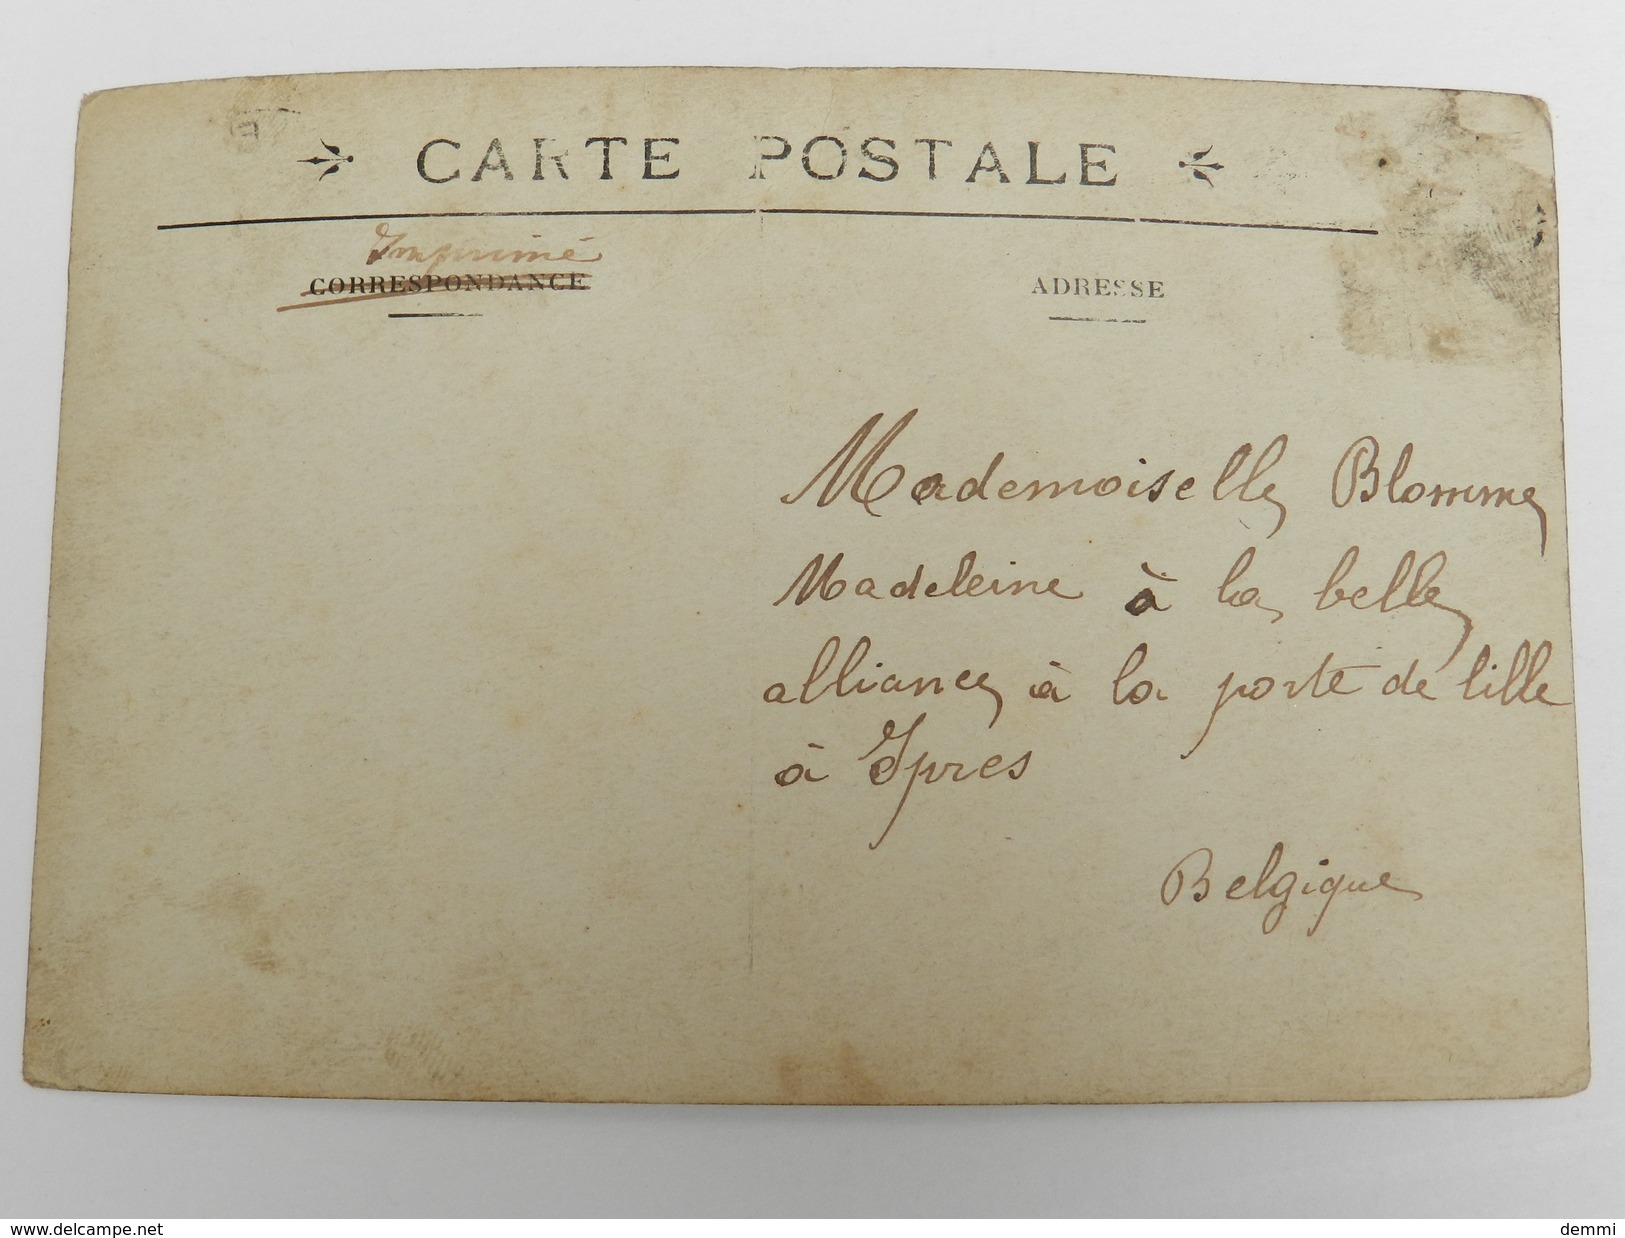 CARTE POSTALE
Imprimé
CORRESPONDANCE
ADRESSE
Mademoiselle Blomme
Madeleine à la belle
alliance à la porte de lille
à Ypres
Belgique
www.delcampe.net
demmi